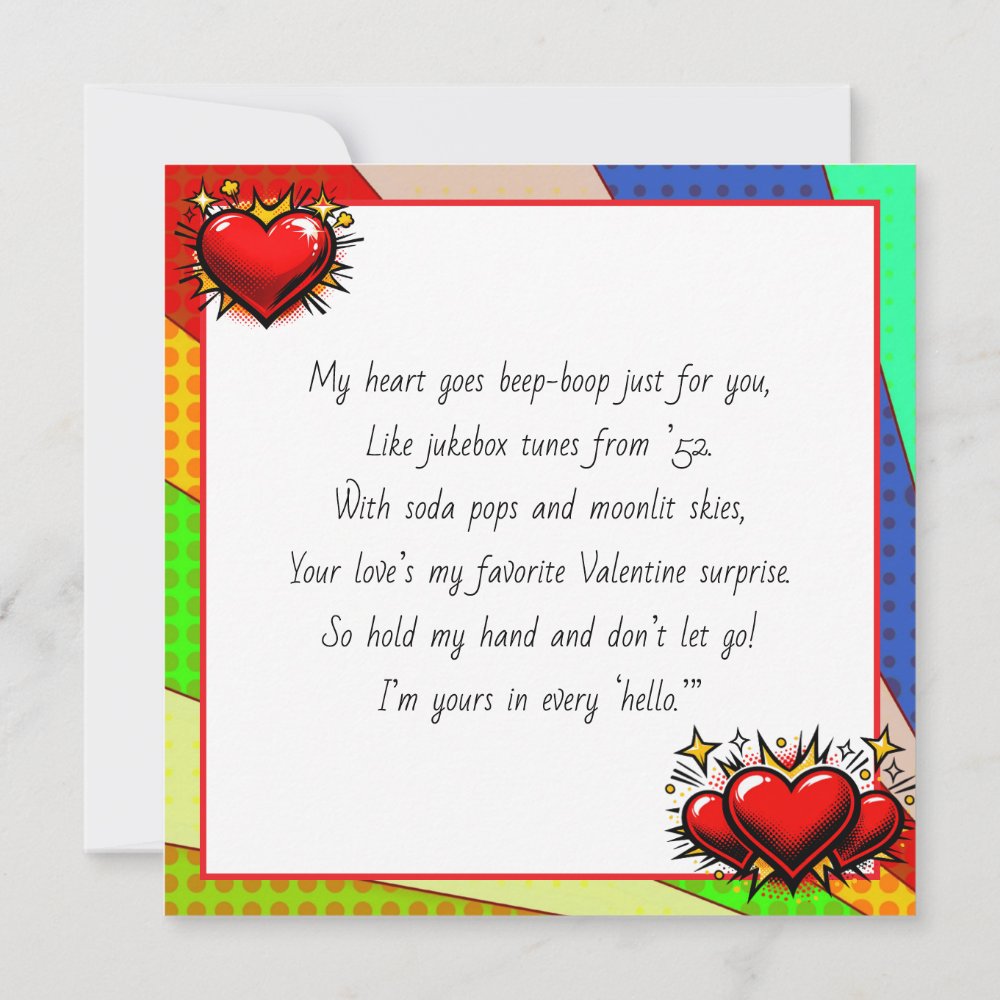 My heart goes beep-boop just for you,
Like jukebox tunes from ’52.
With soda pops and moonlit skies,
Your love’s my favorite Valentine surprise.
So hold my hand and don’t let go!
I’m yours in every ‘hello.’”